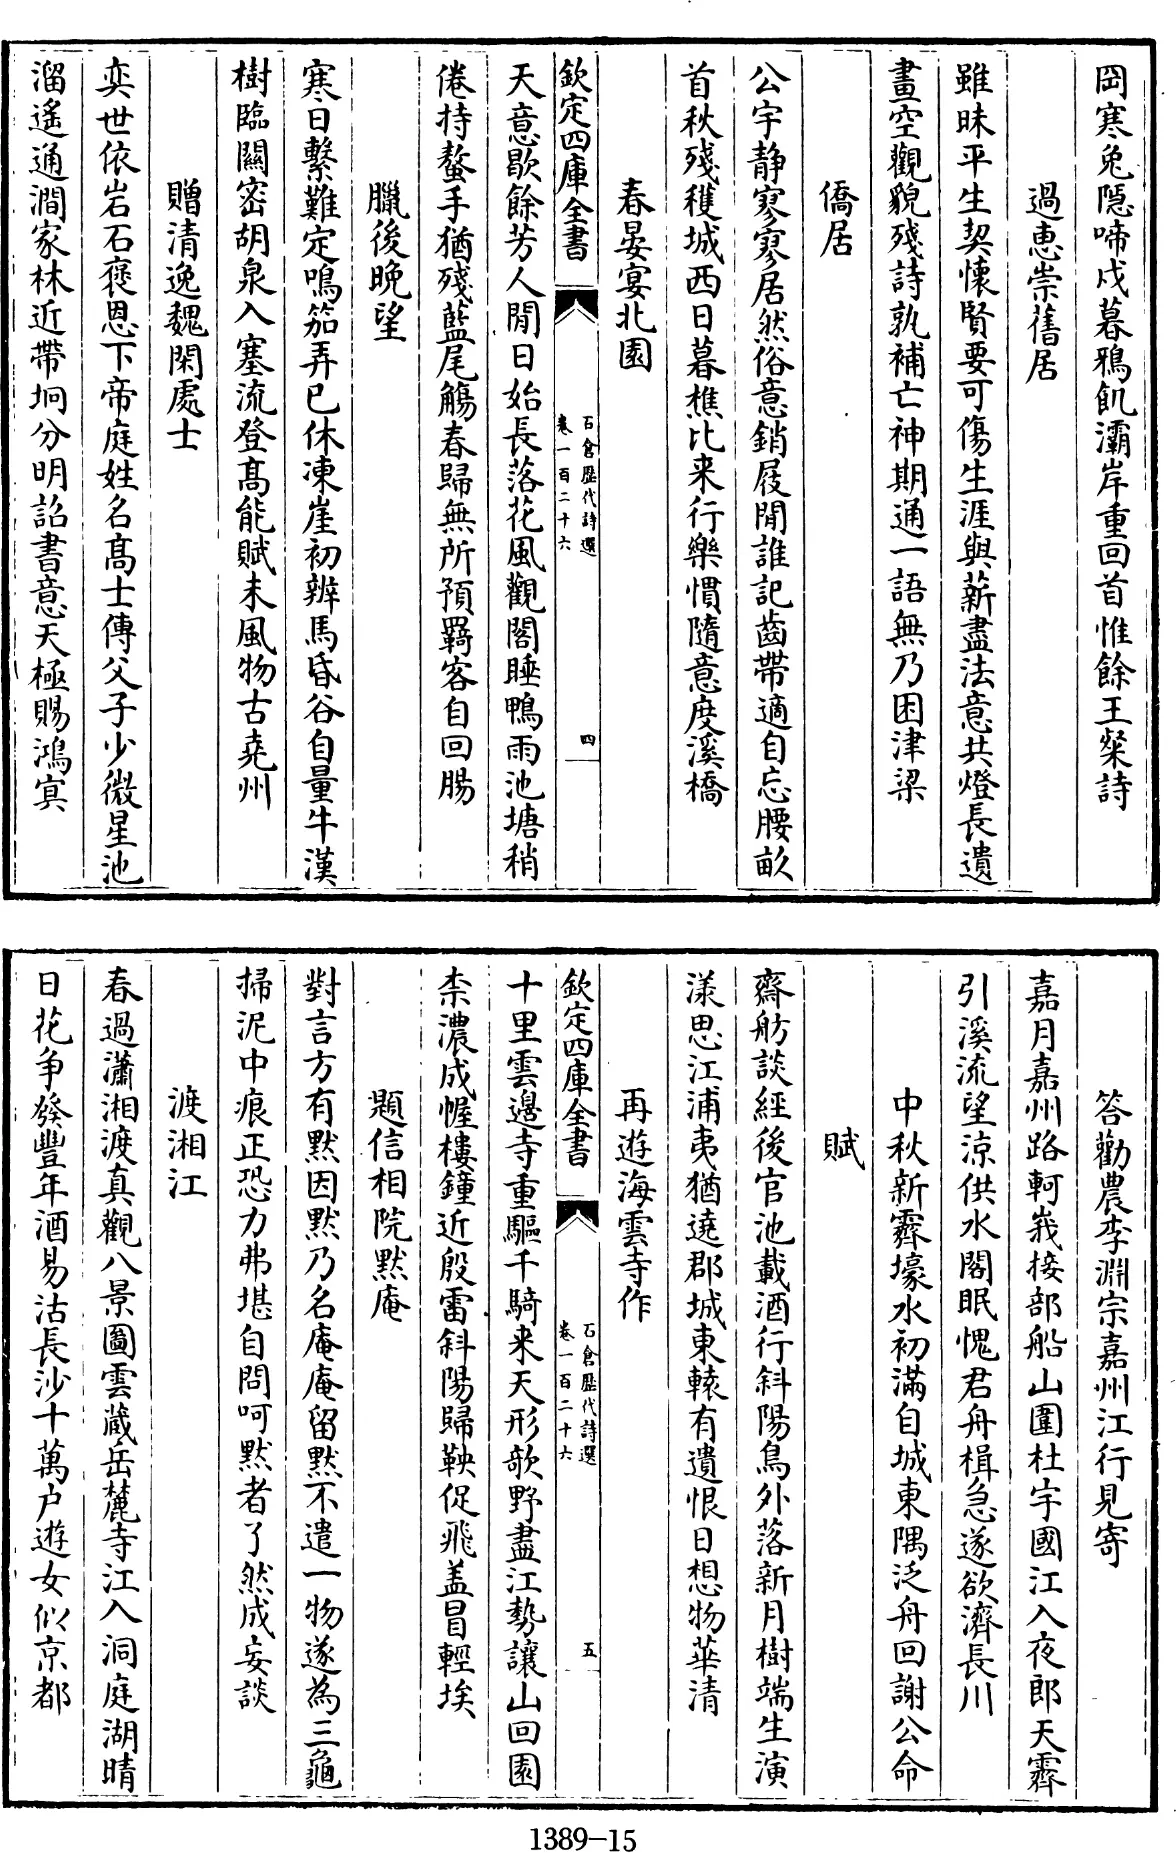 岡寒兔隠啼戍暮鴉飢灞岸重回首惟餘王粲詩
過惠崇舊居
雖昧平生契懷賢要可傷生涯與薪盡法意共燈長遺
畫空觀貌殘詩孰補亡神期通一語無乃困津梁
僑居
公宇静寥寥居然俗意銷屐閒誰記齒帶適自忘腰畝
首秋殘穫城西日暮樵比来行樂慣隨意度溪橋
春晏宴北園
欽定四庫全書
石倉歷代詩選
卷一百二十六
四
天意歇餘芳人閒日始長落花風觀閣睡鴨雨池塘稍
倦持螯手猶殘藍尾觴春歸無所預羇客自回腸
臘後晚望
寒日繫難定鳴笳弄已休凍崖初辨馬昏谷自量牛漢
樹臨關密胡泉入塞流登髙能賦未風物古堯州
贈清逸魏閑處士
奕世依岩石褒恩下帝庭姓名髙士傳父子少微星池
溜遙通澗家林近帶坰分明詔書意天極賜鴻㝠
答勸農李淵宗嘉州江行見寄
嘉月嘉州路軻峩接部船山圍杜宇國江入夜郎天霽
引溪流望涼供水閣眠愧君舟楫急遂欲濟長川
中秋新霽壕水初滿自城東隅泛舟回謝公命
賦
齋舫談經後官池載酒行斜陽鳥外落新月樹端生演
漾思江浦夷猶遶郡城東轅有遺恨日想物華清
再遊海雲寺作
欽定四庫全書
石倉歷代詩選
卷一百二十六
五
十里雲邊寺重驅千騎来天形欹野盡江勢讓山回園
柰濃成幄樓鐘近殷雷斜陽歸鞅促飛盖冒輕埃
題信相院黙庵
對言方有黙因黙乃名庵庵留黙不遣一物遂為三龜
掃泥中痕正恐力弗堪自問呵黙者了然成妄談
渡湘江
春過瀟湘渡真觀八景圖雲藏岳麓寺江入洞庭湖晴
日花争發豐年酒易沽長沙十萬户遊女似京都
1389-15